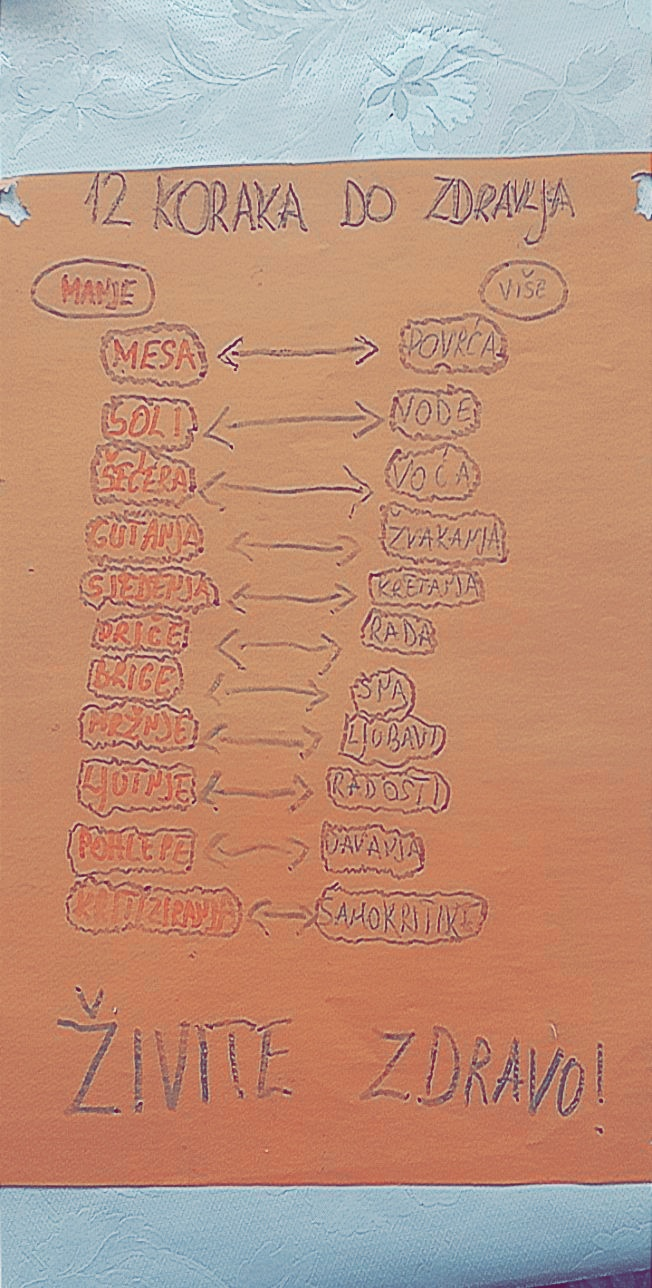 12 KORAKA DO ZDRAVLJA
MANJE VIŠE
MESA POVRĆA
SOLI VODE
ŠEĆERA VOĆA
GUTANJA ŽVAKANJA
SJEDENJA KRETANJA
PRIČE RADA
BRIGE SNA
MRŽNJE LJUBAVI
LJUTNJE RADOSTI
POHLEPE DAVANJA
KRITIZIRANJA SAMOKRITIKE
ŽIVITE ZDRAVO!